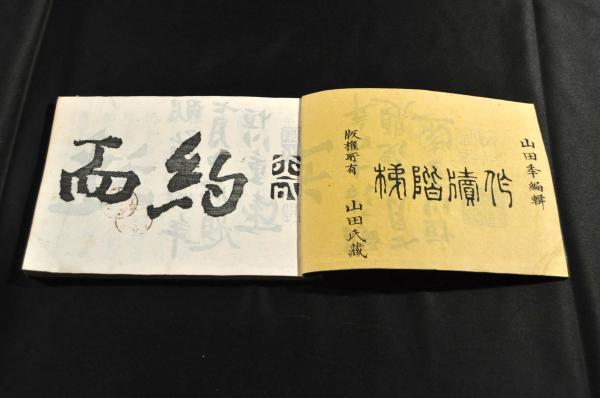 山田編輯
作牘階梯
版權所有
山田氏藏
約而